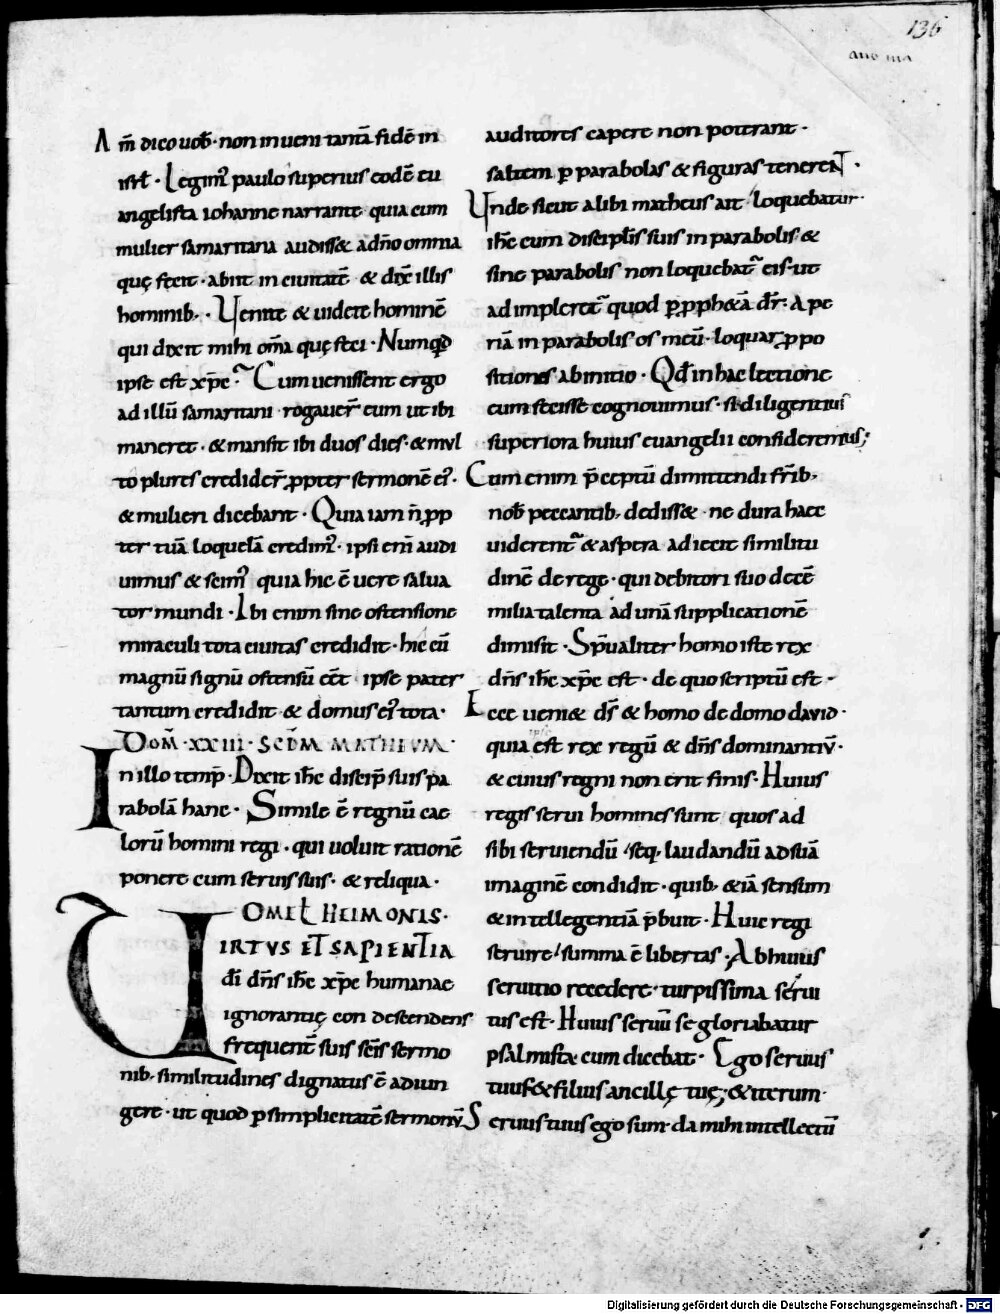 136
Am̄ dico uob̄· non inueni tantā fidē in
isrł· Legim᷒ paulo superius eodē eu
angelista iohanne narrante quia cum
mulier samaritana audiss& a dn̄o omnia
quę fecit· abiit in ciuitatē & dix̄ illis
hominib;· Uenite & uidete hominē
qui dixit mihi om̄a quę feci· Numqd̄
ipse est xp̄c· Cum uenissent ergo
ad illū samaritani rogauer̄ eum ut ibi
maneret· & mansit ibi duos dies· & mul
to plures credider̄ ꝓpter sermonē ei᷒·
& mulieri dicebant· Quia iam n̄ ꝓp
ter tuā loquelā credim᷒· ipsi eni᷒ audi
uimus & scim᷒ quia hic ē uere salua
tor mundi· Ibi enim sine ostensione
miraculi tota ciuitas credidit· hic cū
magnū signū ostensū eēt ipse pater
tantum credidit & domus ei᷒ tota·
DOM̄· XXIII· SCDM̄ MATHEUM·
In illo temp̄· Dixit ih̄c discip̄ suis pa
rabolā hanc· Simile ē regnū cae
lorū homini regi· qui uoluit rationē
ponere cum seruis suis· & reliqua·
OMEL̄ HEIMONIS·
UIRTUS ET SAPIENTIA
dī dn̄s ih̄c xp̄c humanae
ignorantię condescendens
frequent̄ suis sc̄is sermo
nib; similitudines dignatus ē adiun
gere· ut quod ꝑ simplicitatē sermonū
auditores capere non poterant·
saltem ꝑ parabolas & figuras tenerent·
Unde sicut alibi matheus ait loquebatur
ih̄c cum discipl̄is suis in parabolis· &
sine parabolis non loquebat᷒ eis· ut
adimpleret᷒ quod ꝑ ꝓph&ā dr̄· Ape
riā in parabolis os meū· loquar ꝓpo
sitiones ab initio· Qd̄ in hac lectione
eum fecisse cognouimus· si diligentius
superiora huius euangelii consideremus;
Cum enim p̄ceptū dimittendi fr̄ib;
nob̄ peccantib; dediss&· ne dura haec
uiderent᷒ & aspera adiecit similitu
dinē de rege· qui debitori suo decē
milia talenta ad unā supplicationē
dimisit· Sp̄ualiter homo iste rex
dn̄s ih̄c xp̄c est· de quo scriptū est·
Ecce ueni& ds̄ & homo de domo dauid·
quia est ipse rex regū & dn̄s dominantiū·
& cuius regni non erit finis· Huius
regis serui homines sunt quos ad
sibi seruiendū seq; laudandū ad suā
imaginē condidit· quib; & iā sensum
& intellegentiā p̄buit· Huic regi
seruire summa ē libertas· Ab huius
seruitio recedere· turpissima serui
tus est· Huius seruū se gloriabatur
psalmista cum dicebat· Ego seruus
tuus & filius ancillę tuę; & iterum·
Seruus tuus ego sum· da mihi intellectū
Digitalisierung gefördert durch die Deutsche Forschungsgemeinschaft - DFG